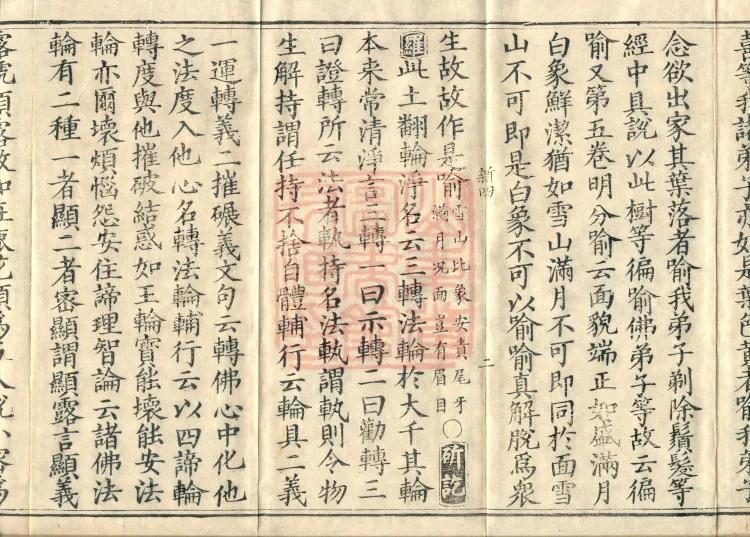 念欲出家其葉落者喻我弟子剃除鬚髮等
經中具說以此樹等徧喻佛弟子等故云徧
喻又第五卷明分喻云面貌端正如盛滿月
白象鮮潔猶如雪山滿月不可即同於面雪
山不可即是白象不可以喻喻真解脫爲衆
新四
二
生故故作是喻雪山比象安責尾牙
滿月况面豈有眉目○研記
羅此土翻輪淨名云三轉法輪於大千其輪
本来常清淨言三轉一曰示轉二曰勸轉三
曰證轉所云法者軌持名法軌謂軌則令物
生解持謂任持不捨自體輔行云輪具二義
一運轉義二摧碾義文句云轉佛心中化他
之法度入他心名轉法輪輔行云以四諦輪
轉度與他摧破結惑如王輪寶能壞能安法
輪亦爾壞煩惱怨安住諦理智論云諸佛法
輪有二種一者顯二者密顯謂顯露言顯義